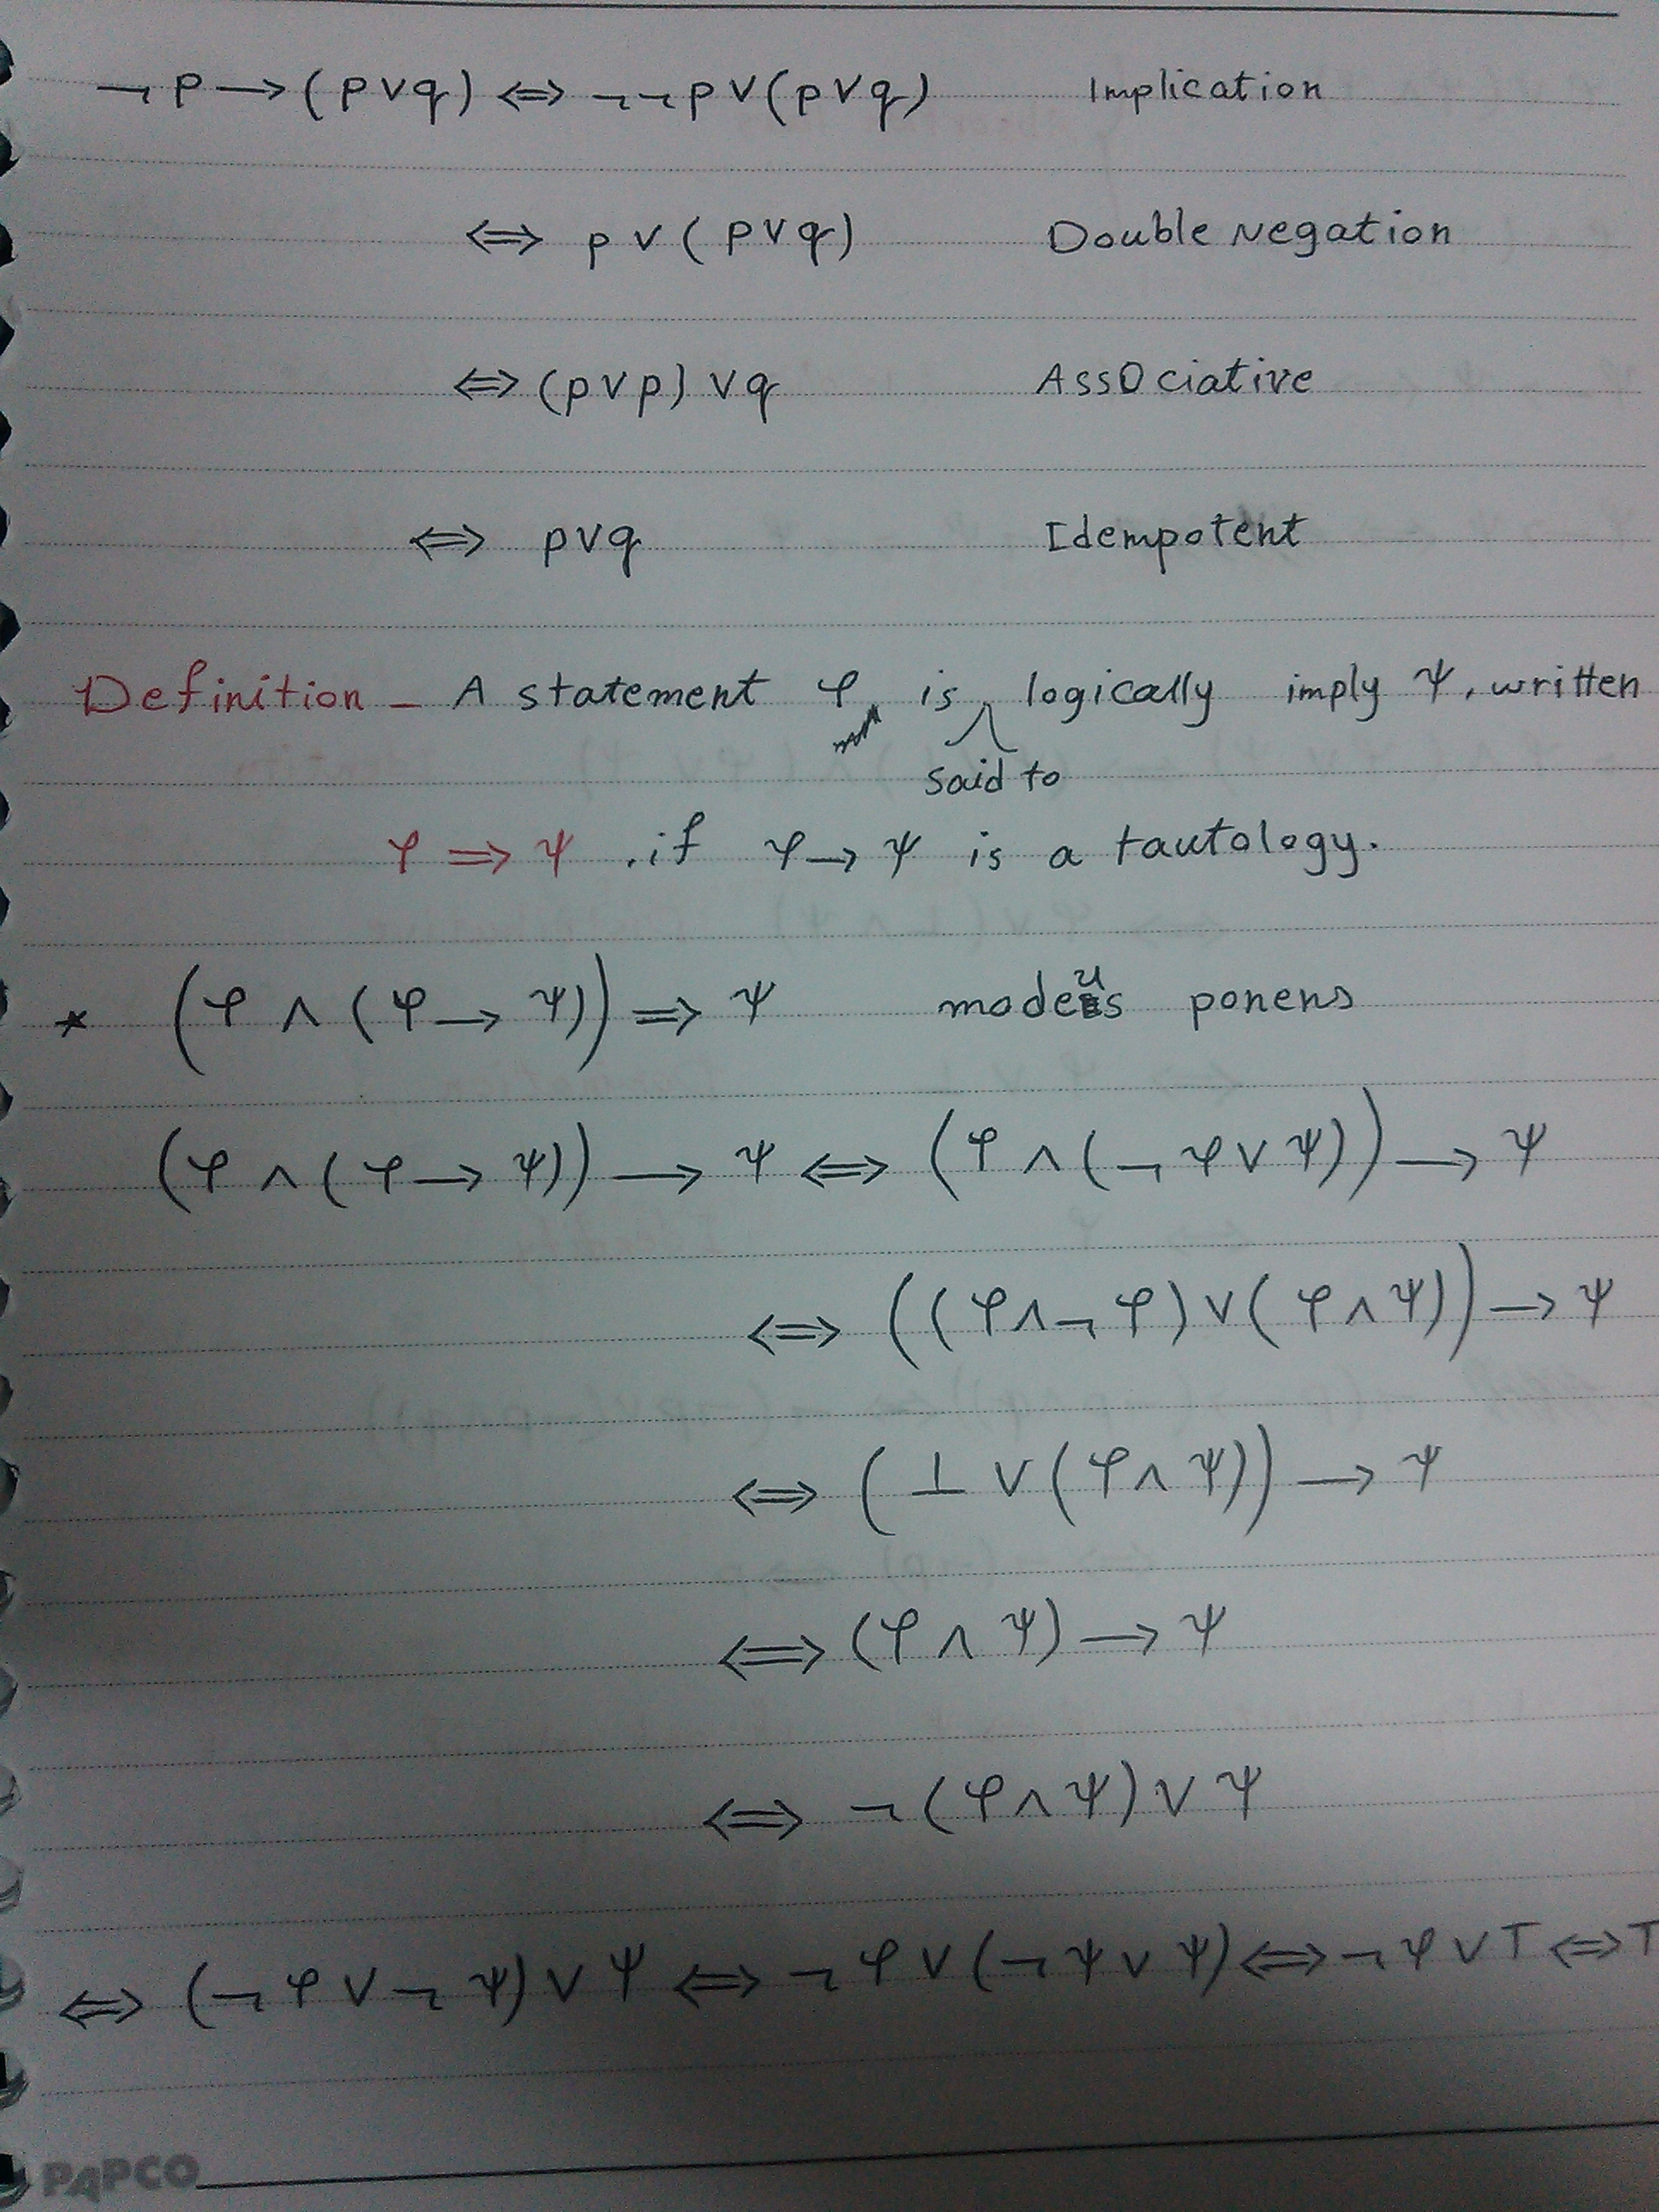 ¬p → (p∨q) ⇔ ¬¬p∨(p∨q) Implication
⇔ p∨(p∨q) Double Negation
⇔ (p∨p)∨q Associative
⇔ p∨q Idempotent
Definition – A statement φ is logically imply ψ, written
said to
φ ⇒ ψ , if φ → ψ is a tautology.
* (φ ∧ (φ → ψ)) ⇒ ψ modus ponens
(φ ∧ (φ → ψ)) → ψ ⇔ (φ ∧ (¬φ∨ψ)) → ψ
⇔ ((φ∧¬φ)∨(φ∧ψ)) → ψ
⇔ (⊥∨(φ∧ψ)) → ψ
⇔ (φ∧ψ) → ψ
⇔ ¬(φ∧ψ)∨ψ
⇔ (¬φ∨¬ψ)∨ψ ⇔ ¬φ∨(¬ψ∨ψ) ⇔ ¬φ∨T ⇔ T
PAPCO